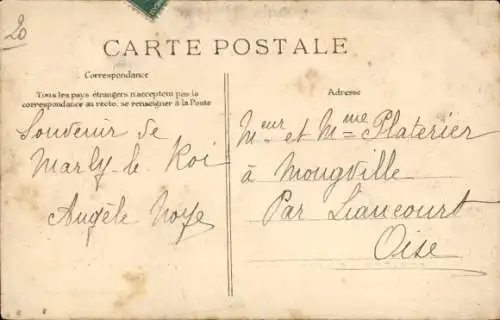 20
CARTE POSTALE
Correspondance
Tous les pays étrangers n'acceptent pas la
correspondance au recto, se renseigner à la Poste
Souvenir de
Marly-le-Roi
Angèle Noye
Adresse
Meur et Mme Platerier
à Mongville
Par Liancourt
Oise